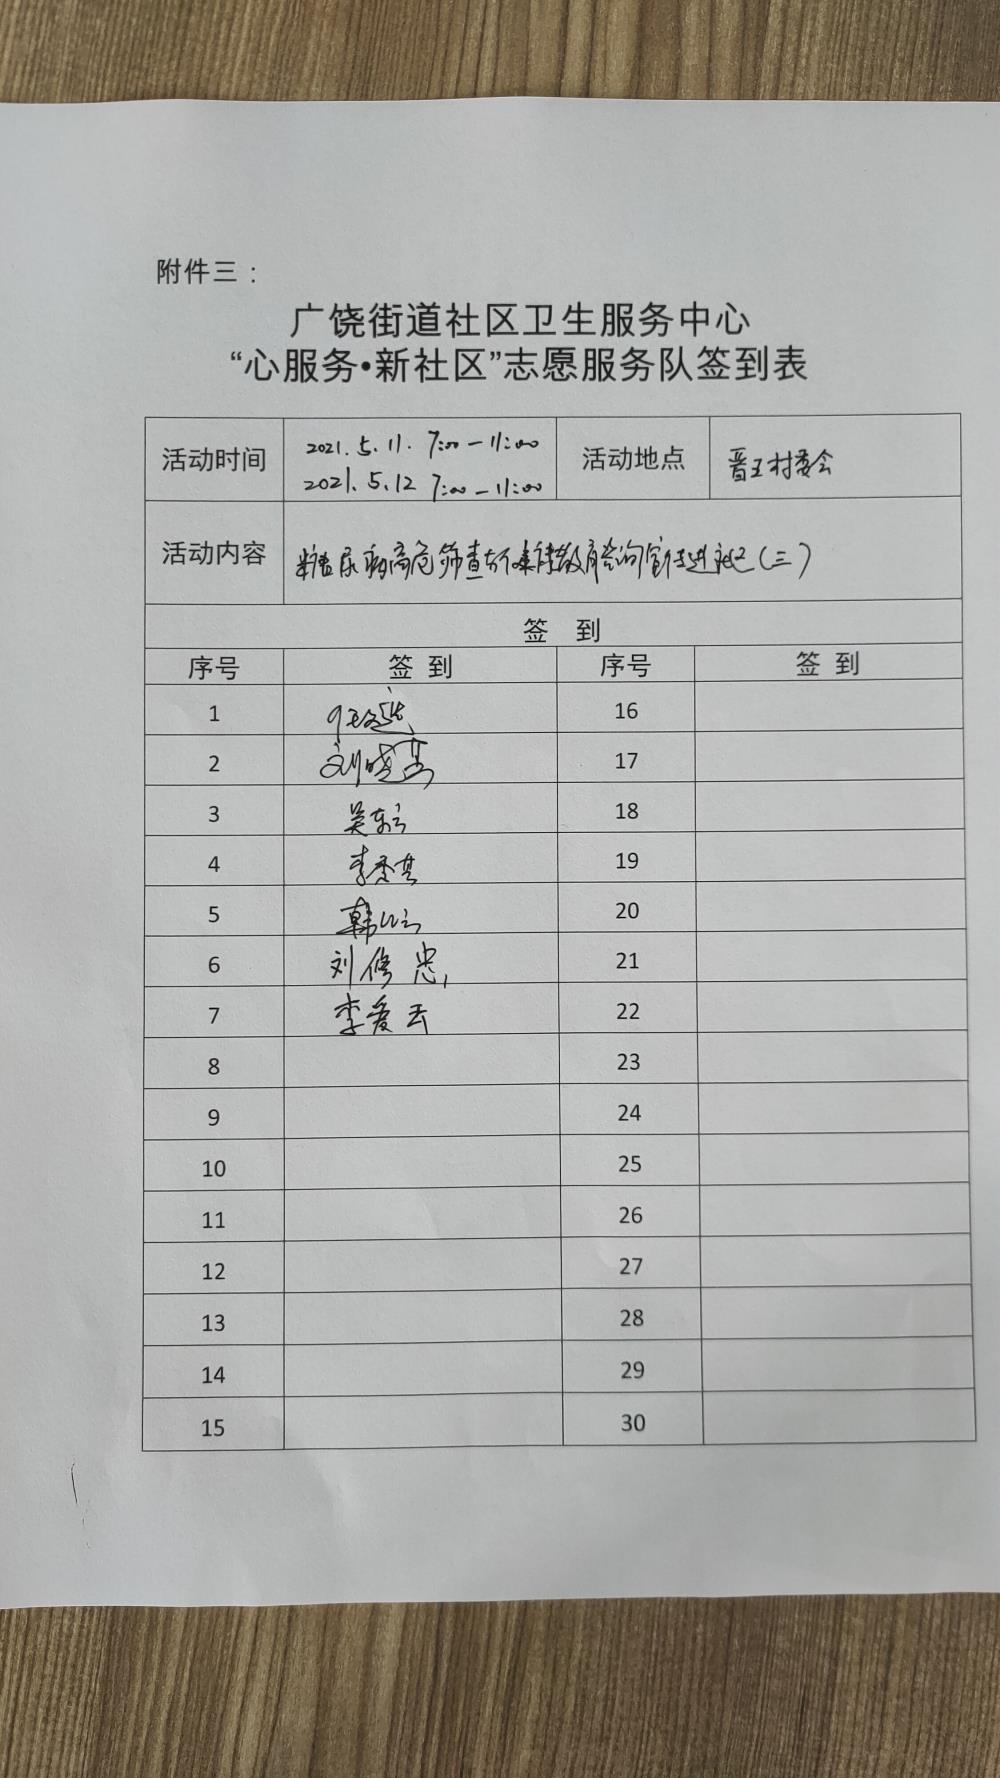 附件三：
广饶街道社区卫生服务中心
“心服务•新社区”志愿服务队签到表
活动时间 2021.5.11. 7:00—11:00 活动地点 晋王村委会
2021.5.12 7:00—11:00
活动内容 糖尿病高危筛查 健康教育咨询 进社区(三)
签 到
序号 签 到 序号 签 到
1 16
2 刘晓 17
3 吴东云 18
4 李秀其 19
5 韩 云 20
6 刘修忠 21
7 李爱云 22
8 23
9 24
10 25
11 26
12 27
13 28
14 29
15 30